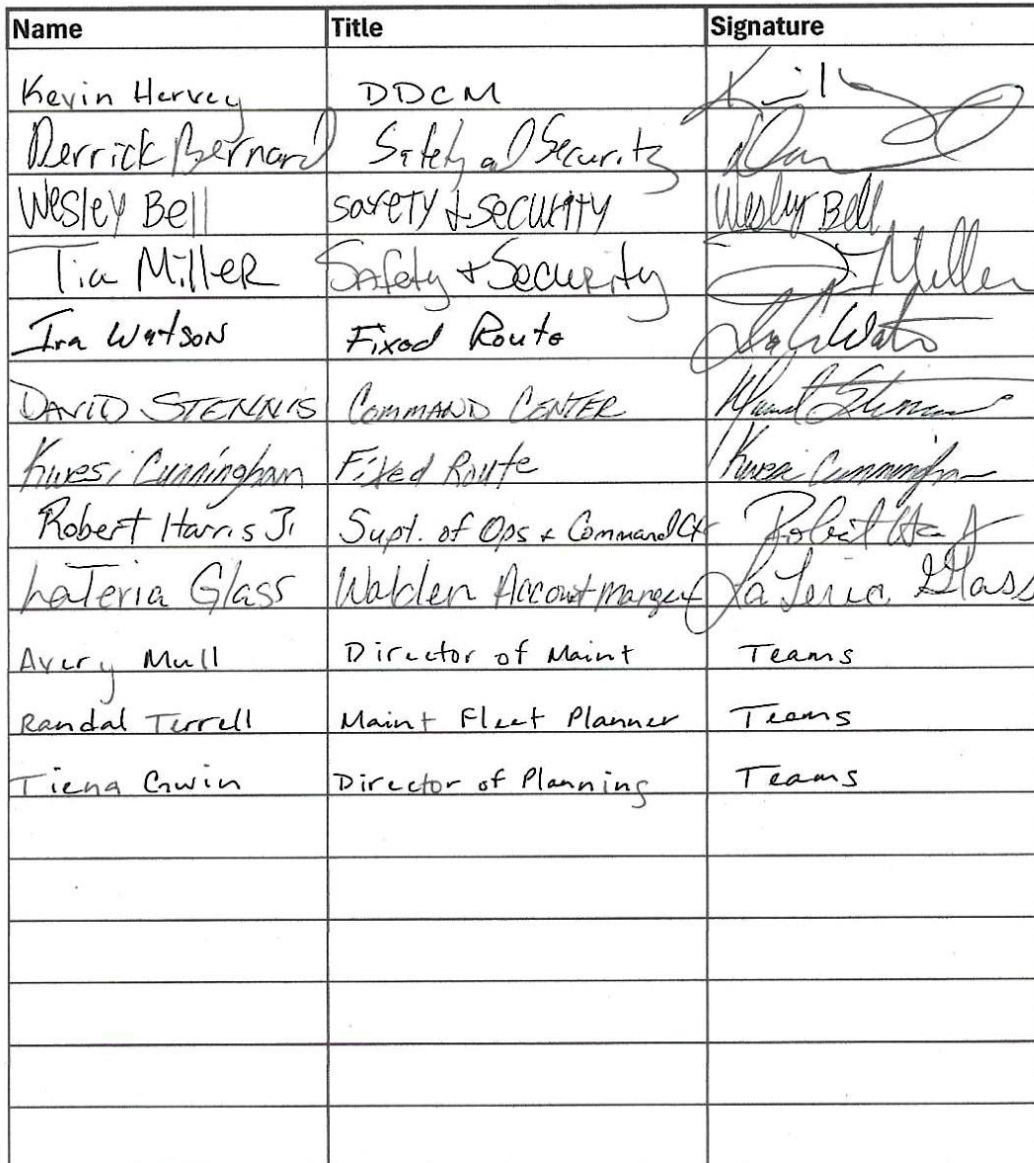 Name Title Signature
Kevin Hervey DDCM
Derrick Bernard Safety and Security
Wesley Bell safety & security Wesley Bell
Tia Miller Safety + Security T Miller
Ira Watson Fixed Route
DAVID STENNIS COMMAND CENTER
Kwesi Cunningham Fixed Route Kwesi Cunningham
Robert Harris Jr Supt. of Ops & Command Ctr Robert
LaTeria Glass Walden Account manger LaTeria Glass
Avery Mull Director of Maint Teams
Randal Terrell Maint Fleet Planner Teams
Tiena Gwin Director of Planning Teams